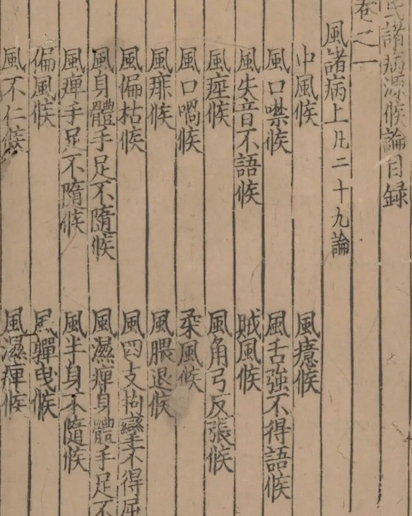 氏諸病源候論目録
卷之一
風諸病上凡二十九論
中風候
風癔候
風口噤候
風舌強不得語候
風失音不語候
賊風候
風痙候
風角弓反張候
風口喎候
柔風候
風痱候
風腲退候
風偏枯候
風四支拘攣不得屈
風身體手足不隨候
風濕痺身體手足不
風痺手足不隨候
風半身不隨候
偏風候
風嚲曳候
風不仁候
風濕痺候